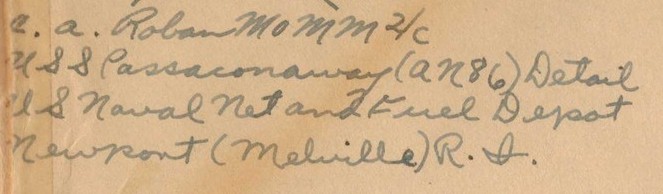 a. Roban MoMM 2/c
USS Passaconaway (AN86) Detail
US Naval Net and Fuel Depot
Newport (Melville) R. I.